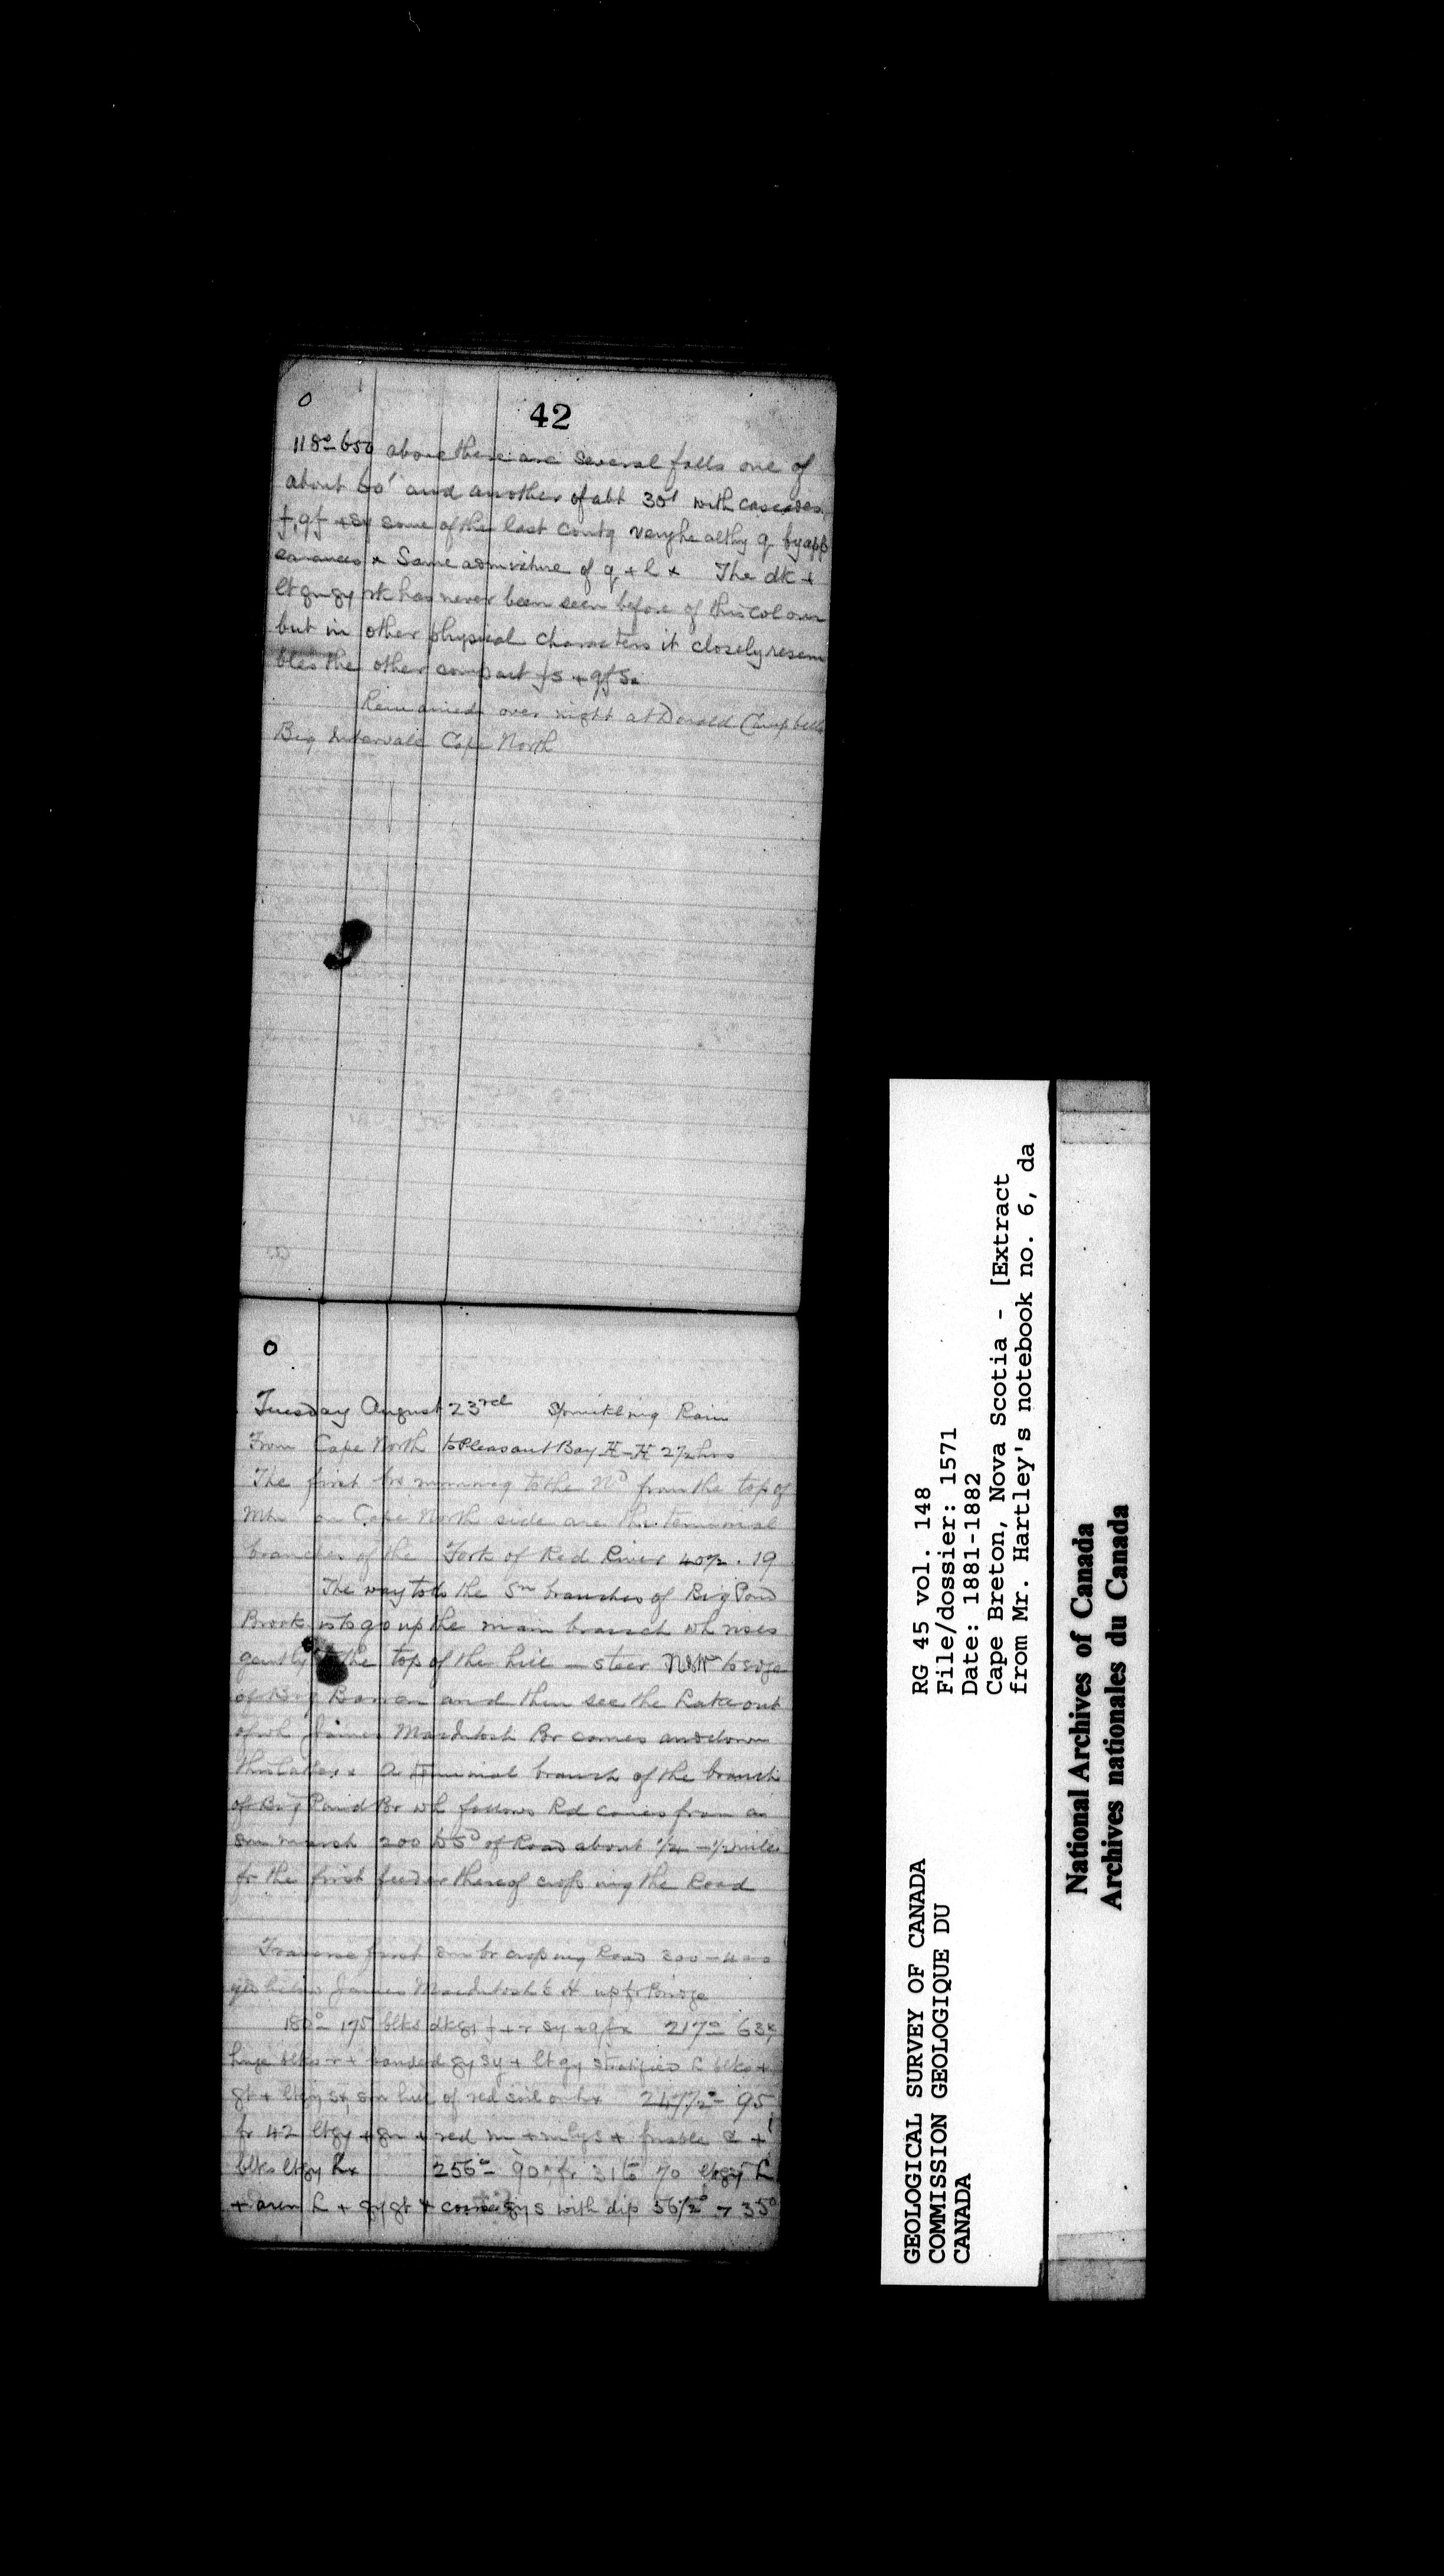 0
42
118°- 650 above there are several falls one of
about 60' and another of abt 30' with cascades,
f, qf + sy some of the last contg very healthy q by app
earances x Same admixture of q + l x The dk +
lt gn gy rk has never been seen before of this colour
but in other physical characters it closely resem
bles the other compact fs + qfs.
Remained over night at Donald Campbells
Big Intervale Cape North
0
Tuesday August 23rd Sprinkling Rain
From Cape North to Pleasant Bay H-H 2½ hrs
The first brs running to the Nd from the top of
Mtn on Cape North side are the terminal
branches of the Fork of Red River 40½ . 19
The way to do the Sn branches of Big Pond
Brook is to go up the main branch wh rises
gently to the top of the hill - steer NW to edge
of Big Barren and then see the Lake out
of wh James MacIntosh Br comes and down
the Lakes x A terminal branch of the branch
of Big Pond Br wh follows Rd comes from a
sm marsh 200 to Sd of Road about ¼ - ½ mile
fr the first feeder thereof crossing the Road
Traverse first sm br crossing Road 300-400
yds below James MacIntosh's H up fr Bridge
180°- 175 blks dk gy f + r sy + qf x 217°- 63x
huge blks r + banded gy sy + lt gy stratified L blks +
gt + lt gy s x sm hill of red soil on 247½°- 95
fr 42 lt gy + gn + red m + mly s + friable +
blks lt gy L x 256°- 90 x fr 31 to 70 lt gy L
+ aren L + gy gt + coarse gy s with dip 56½° > 35°
GEOLOGICAL SURVEY OF CANADA
COMMISSION GEOLOGIQUE DU
CANADA
RG 45 vol. 148
File/dossier: 1571
Date: 1881-1882
Cape Breton, Nova Scotia - [Extract
from Mr. Hartley's notebook no. 6, da
National Archives of Canada
Archives nationales du Canada